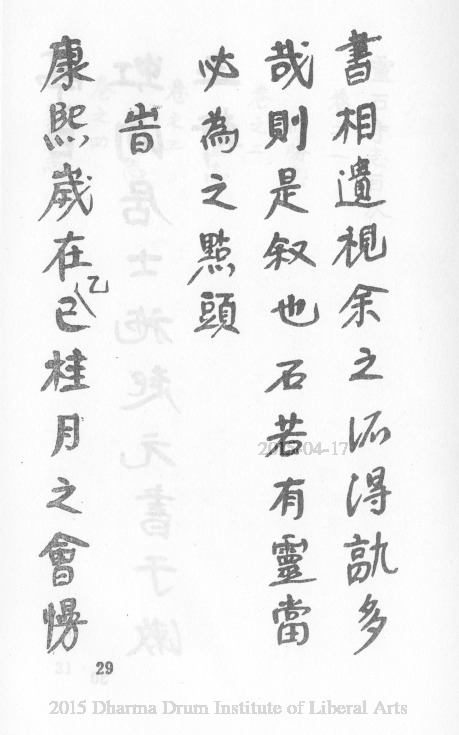 書相遺視余之所得孰多
哉則是叙也石若有靈當
必為之點頭
旹
康熙歲在乙巳桂月之會
29
2015-04-17
2015 Dharma Drum Institute of Liberal Arts